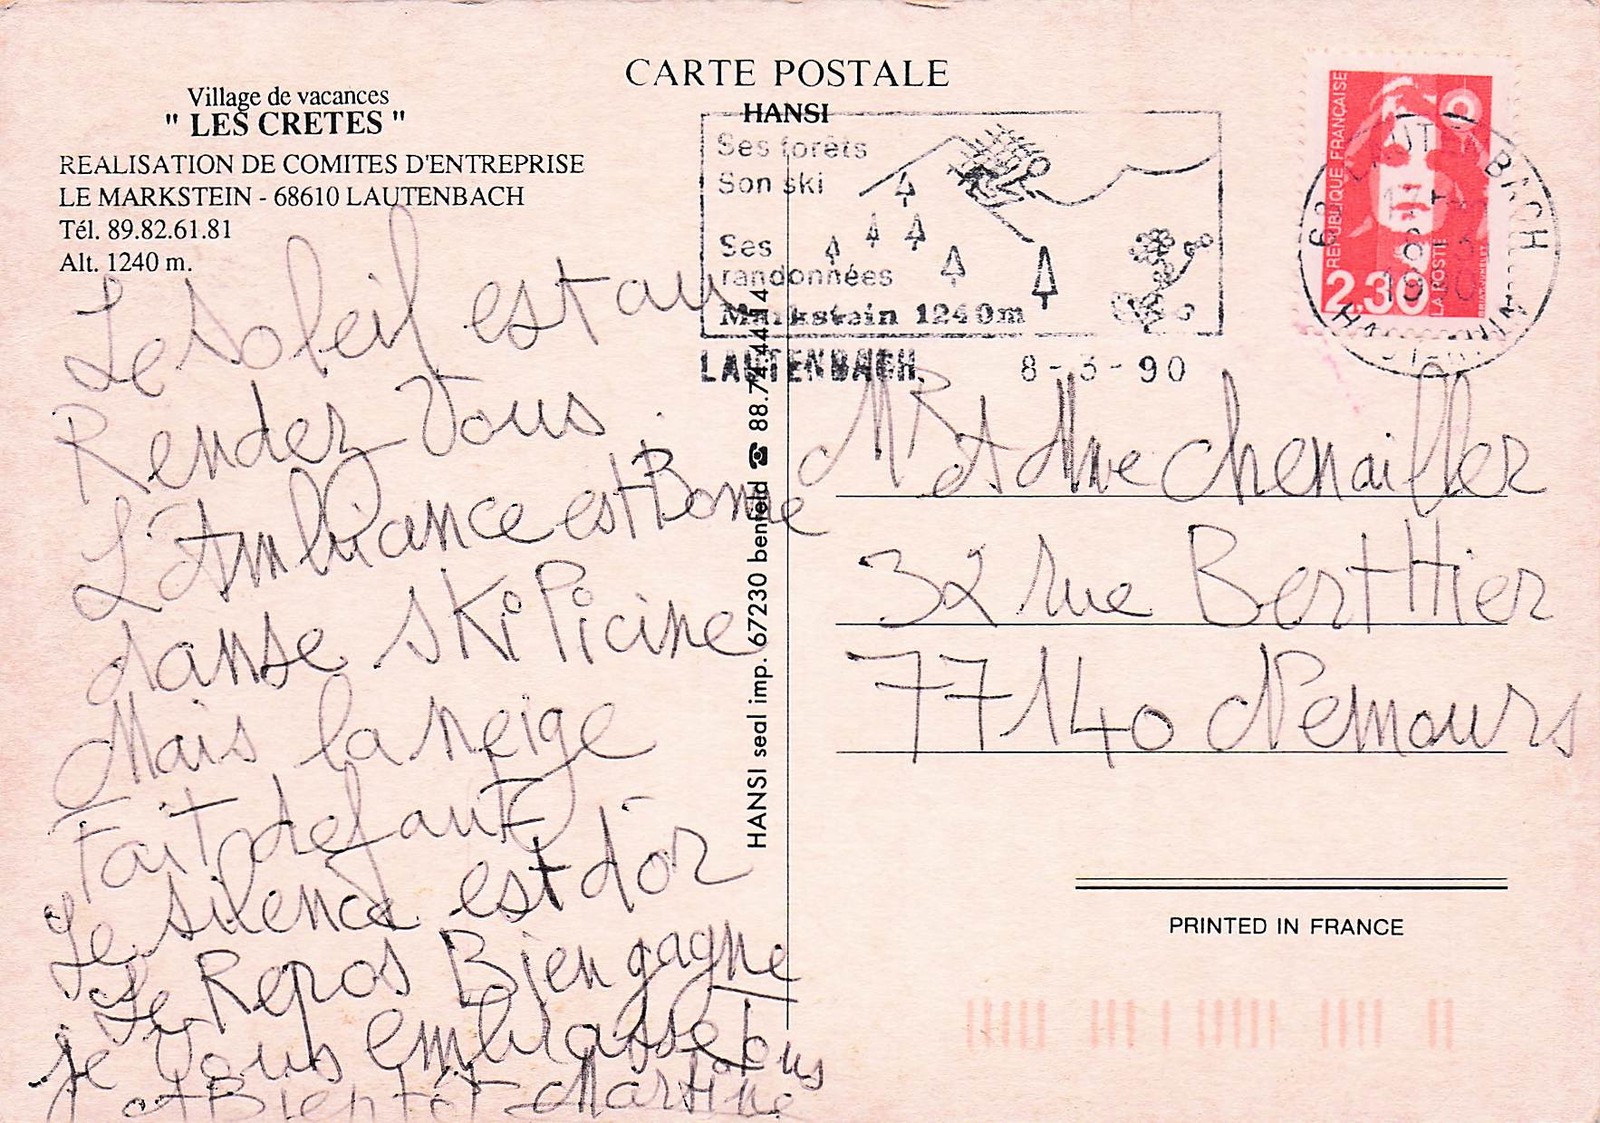 CARTE POSTALE
HANSI
Village de vacances
" LES CRETES "
REALISATION DE COMITES D'ENTREPRISE
LE MARKSTEIN - 68610 LAUTENBACH
Tél. 89.82.61.81
Alt. 1240 m.
Le soleil est au
Rendez Vous.
L'Ambiance est Bonne
danse ski Picine
Mais la neige
Fait defaut
Le silence est d'or
Le Repos Bien gagne
je vous embrasse tous
A Bientôt Martine
HANSI seal imp. 67230 benfeld ☎ 88.74.44.14
Ses forêts
Son ski
Ses
randonnées
Markstein 1240m
LAUTENBACH.
8-3-90
REPUBLIQUE FRANÇAISE
2,30
LA POSTE
68 LAUTENBACH
HAUT-RHIN
Mr et Mme Chenailler
32 rue BertHier
77140 Nemours
PRINTED IN FRANCE